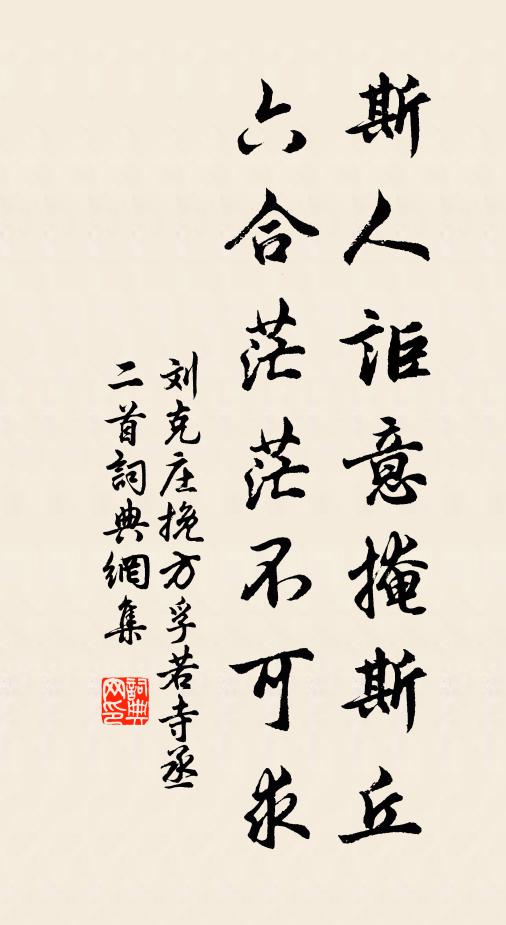 斯人詎意掩斯丘
六合茫茫不可求
刘克庄挽方孚若寺丞
二首詞典網集
詞典
网印